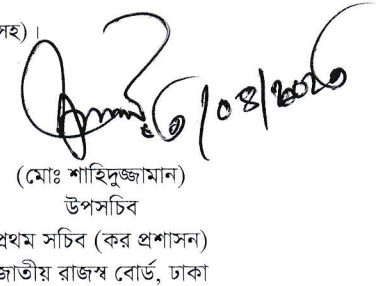 সহ)।
(মোঃ শাহিদুজ্জামান)
উপসচিব
প্রথম সচিব (কর প্রশাসন)
জাতীয় রাজস্ব বোর্ড, ঢাকা